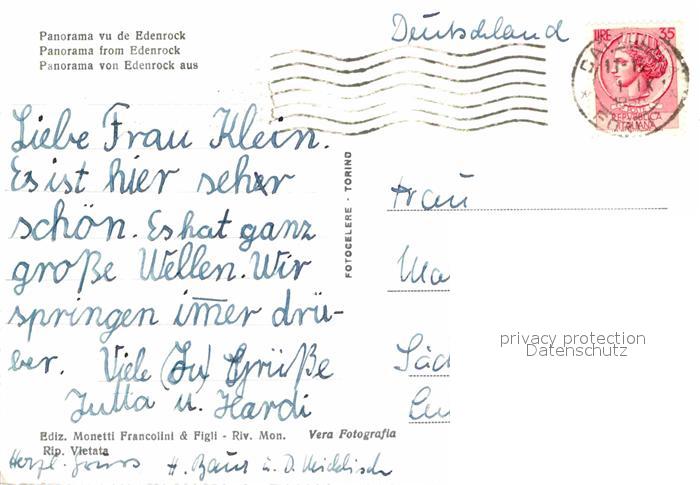 Panorama vu de Edenrock
Panorama from Edenrock
Panorama von Edenrock aus
Deutschland
LIRE 35
REPVBBLICA
ITALIANA
Liebe Frau Klein.
Es ist hier sehr
schön. Es hat ganz
große Wellen. Wir
springen im̅er drü-
ber. Viele Grüße
Jutta u. Hardi
FOTOCELERE - TORINO
Frau
privacy protection
Datenschutz
Ediz. Monetti Francolini & Figli - Riv. Mon.
Vera Fotografia
Rip. Vietata